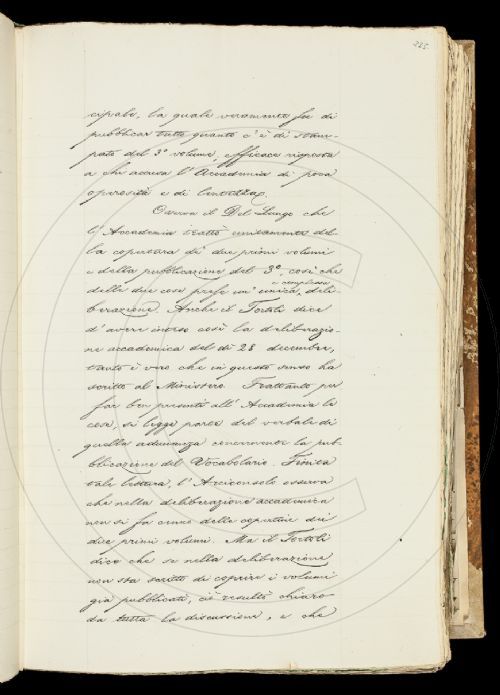 225.
cipale, la quale veramente fu di
pubblicar tutto quanto c'è di stam-
pato del 3º volume, efficace risposta
a chi accusa l'Accademia di poca
operosità e di lentezza.
Osserva il Del Lungo che
l'Accademia trattò unitamente del-
la copertura di due primi volumi
e della pubblicazione del 3º, così che
delle due cose prese un'unica e complessa deli-
berazione. Anche il Tortoli dice
d'avere inteso così la deliberazio-
ne accademica del dì 28 decembre,
tanto è vero che in questo senso ha
scritto al Ministero. Frattanto per
far ben presenti all'Accademia le
cose, si legge parte del verbale di
quella adunanza concernente la pub-
blicazione del Vocabolario. Finita
tale lettura, l'Arciconsolo osserva
che nella deliberazione accademica
non si fa cenno delle copertine dei
due primi volumi. Ma il Tortoli
dice che se nella deliberazione
non sta scritto di coprire i volumi
già pubblicati, ciò resultò chiaro
da tutta la discussione, e che